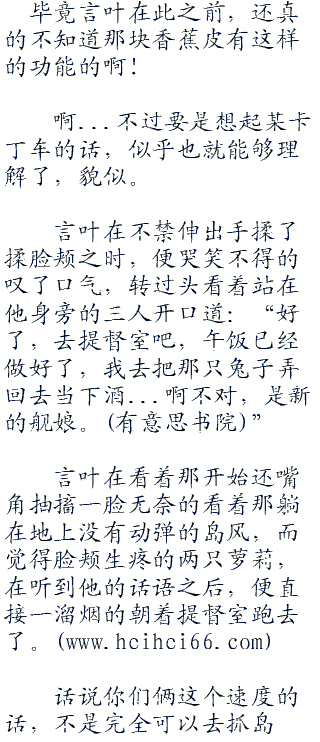 毕竟言叶在此之前，还真
的不知道那块香蕉皮有这样
的功能的啊！
啊...不过要是想起某卡
丁车的话，似乎也就能够理
解了，貌似。
言叶在不禁伸出手揉了
揉脸颊之时，便哭笑不得的
叹了口气，转过头看着站在
他身旁的三人开口道：“好
了，去提督室吧，午饭已经
做好了，我去把那只兔子弄
回去当下酒...啊不对，是新
的舰娘。(有意思书院)”
言叶在看着那开始还嘴
角抽搐一脸无奈的看着那躺
在地上没有动弹的岛风，而
觉得脸颊生疼的两只萝莉，
在听到他的话语之后，便直
接一溜烟的朝着提督室跑去
了。(www.hcihci66.com)
话说你们俩这个速度的
话，不是完全可以去抓岛